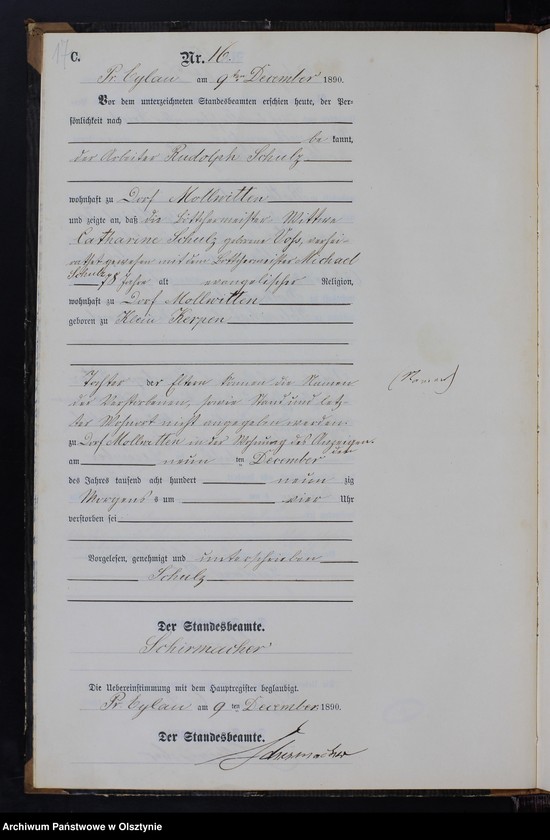 17
C.
Nr. 16.
Pr. Eylau am 9ten December 1890.
Vor dem unterzeichneten Standesbeamten erschien heute, der Per-
sönlichkeit nach
be kannt,
der Arbeiter Rudolph Schulz
wohnhaft zu Dorf Mollwitten
und zeigte an, daß die Böttchermeister-Wittwe
Catharine Schulz geborene Voss, verhei-
rathet gewesen mit dem Böttchermeister Michael
Schulz, 78 Jahre alt evangelischer Religion,
wohnhaft zu Dorf Mollwitten
geboren zu Klein Kerpen
Tochter der Eltern können die Namen
der Verstorbenen, sowie Stand und letz-
ter Wohnort nicht angegeben werden.
zu Dorf Mollwitten in der Wohnung des Anzeigen-
den
am neun ten December
des Jahres tausend acht hundert neun zig
Morgens s um vier Uhr
verstorben sei
Vorgelesen, genehmigt und unterschrieben
Schulz
Der Standesbeamte.
Schirmacher
Die Uebereinstimmung mit dem Hauptregister beglaubigt.
Pr. Eylau am 9ten December 1890.
Der Standesbeamte.
Schirmacher
Archiwum Państwowe w Olsztynie